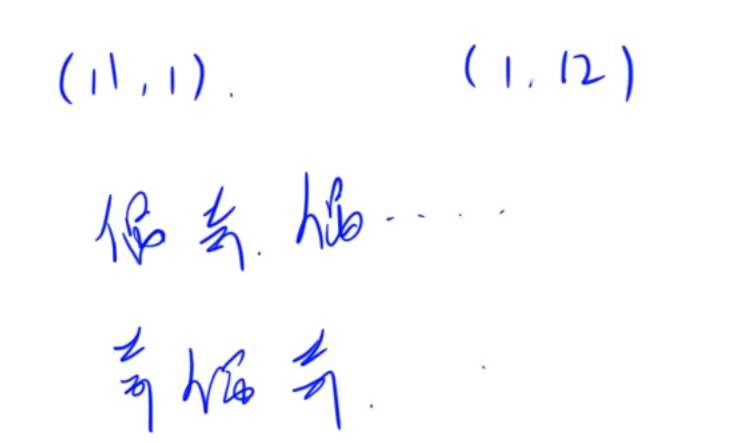 (11,1). (1,12)
偶奇.偶·····
奇偶奇.